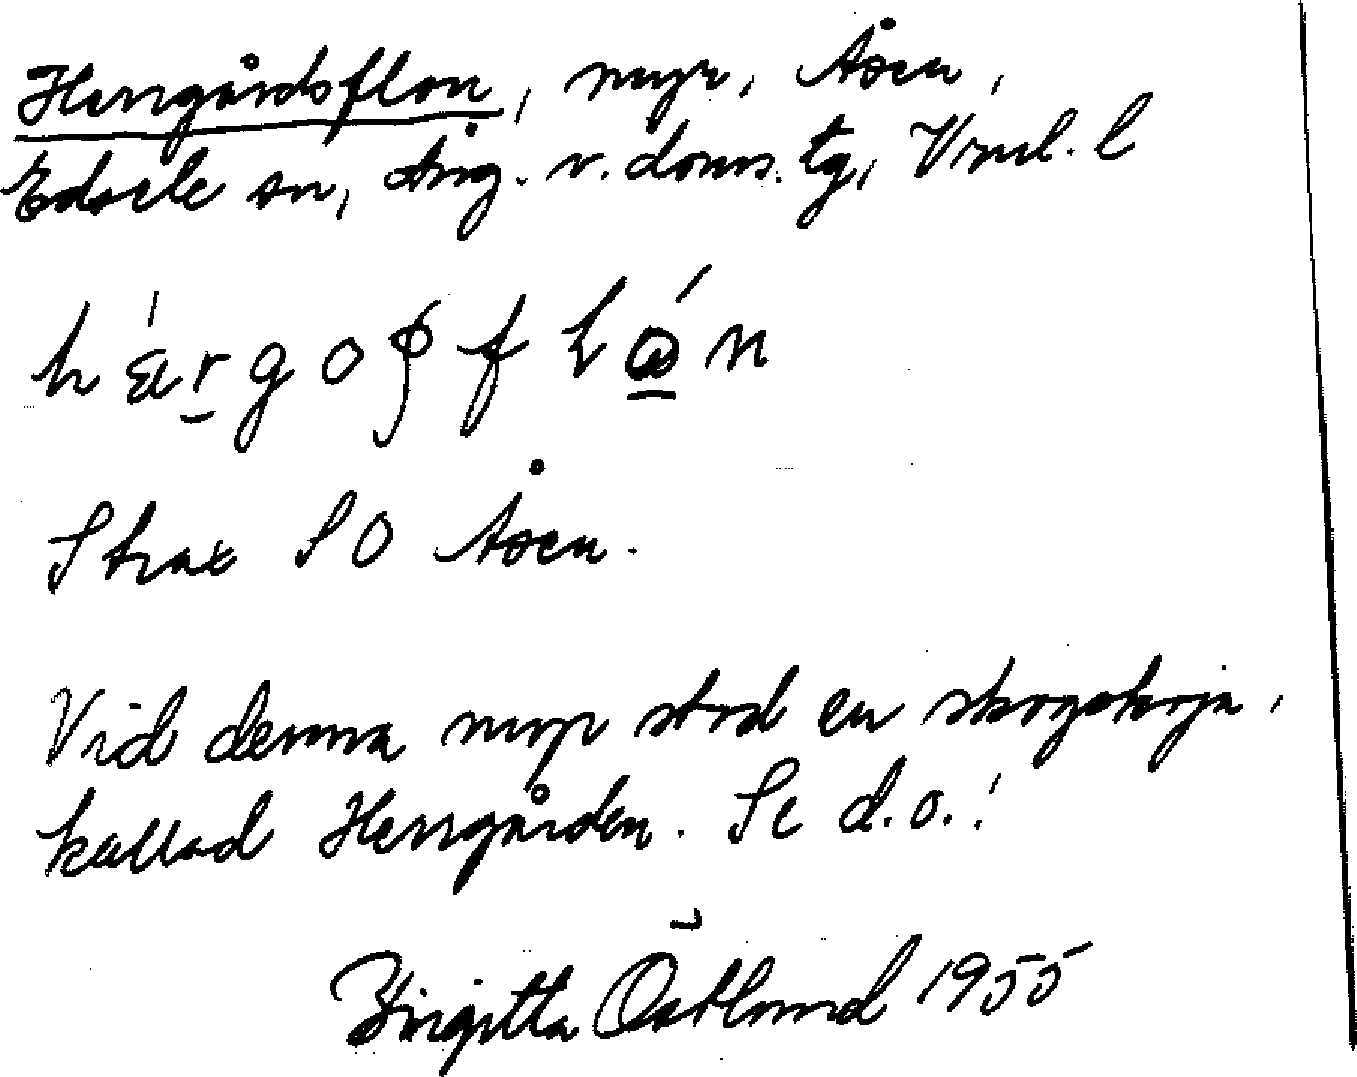 Herrgårdsflon, myr, Åsen,
Edsele sn, Ång. v. doms. tg, Vrnl. l
Strax SO Åsen.
Vid denna myr stod en skogskoja,
kallad Herrgården. Se d.o.!
Birgitta Östlund 1955